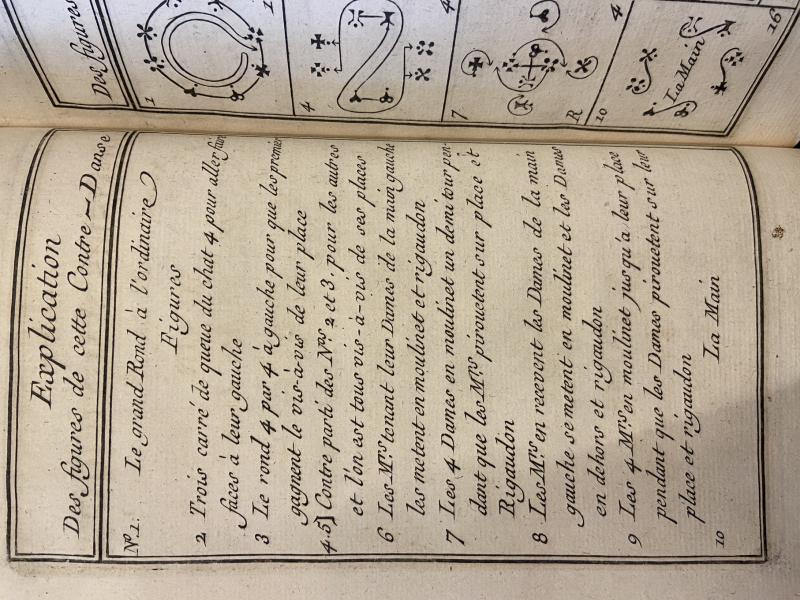 Explication
Des figures de cette Contre-Danse
No. 1. Le grand Rond à l'ordinaire
Figures
2 Trois carré de queue du chat 4 pour aller faire
faces à leur gauche
3 Le rond 4 par 4 à gauche pour que les premier
gagnent le vis-à-vis de leur place
4.5 Contre parti des Nos 2 et 3. pour les autres
et l'on est tous vis-à-vis de ses places
6 Les Mrs tenant leur Dames de la main gauche
les metent en moulinet et rigaudon
7 Les 4 Dames en moulinet un demi tour pen-
dant que les Mrs pirouetent sur place et
Rigaudon
8 Les Mrs en recevent les Dames de la main
gauche se metent en moulinet et les Dames
en dehors et rigaudon
9 Les 4 Mrs en moulinet jusqu'a leur place
pendant que les Dames pirouetent sur leur
place et rigaudon
10 La Main
Des figures
1
1
4
4
7
R
4
10
La Main
16